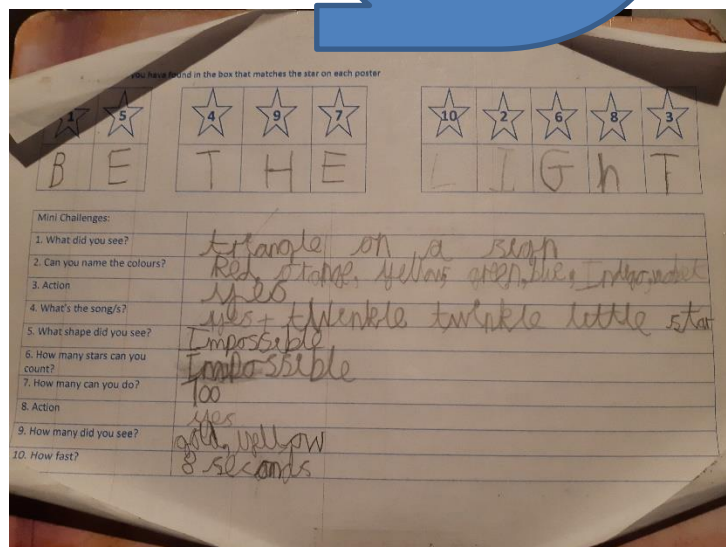 you have found in the box that matches the star on each poster
1 5 4 9 7 10 2 6 8 3
B E T H E L I G h T
Mini Challenges:
1. What did you see? triangle on a sign
2. Can you name the colours? Red, orange, yellow, green, blue, Indigo, violet
3. Action yes
4. What's the song/s? yes + twinkle twinkle little star
5. What shape did you see? Impossible
6. How many stars can you count? Impossible
7. How many can you do? 100
8. Action yes
9. How many did you see? gold, yellow
10. How fast? 8 seconds